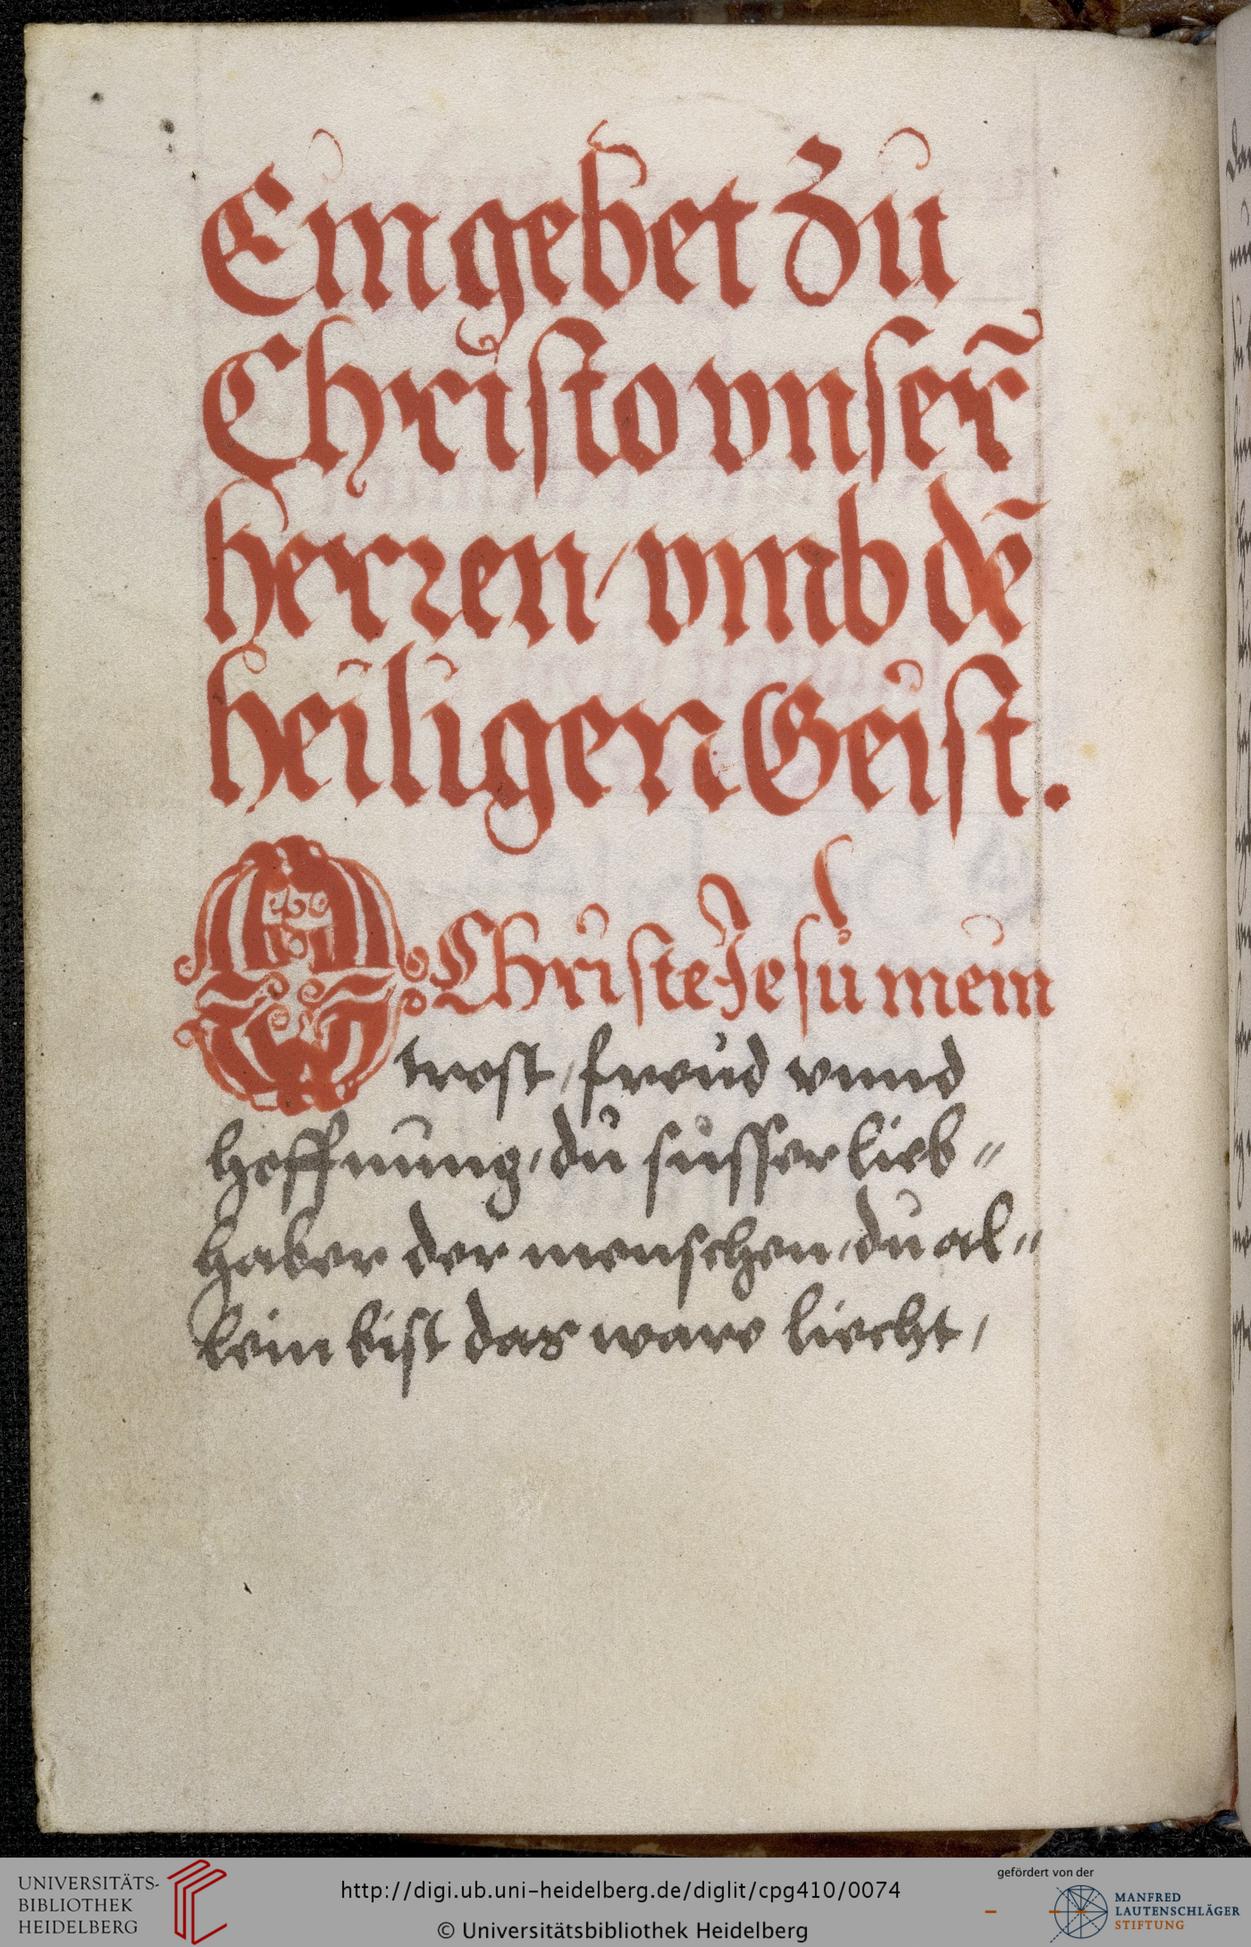 Ein gebet Zu
Christo vnser̃
herren / vmb dē
heiligen Geist.
O Christe Jesu mein
trost / freud vnnd
hoffnung / du süsser lieb⸗
haber der menschen / du al⸗
lein bist das ware liecht /
UNIVERSITÄTS-
BIBLIOTHEK
HEIDELBERG
http://digi.ub.uni-heidelberg.de/diglit/cpg410/0074
© Universitätsbibliothek Heidelberg
gefördert von der
MANFRED
LAUTENSCHLÄGER
STIFTUNG